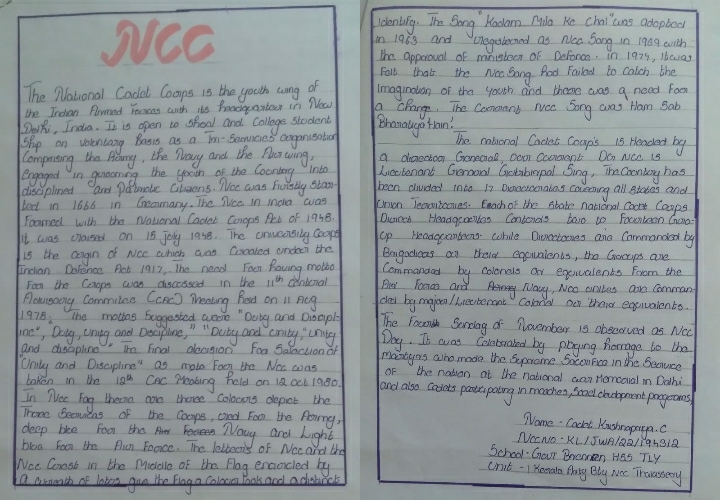 NCC
The National Cadet Coorps is the youth wing of
the Indian Armed Fources with its headquarter in New
Delhi, India. It is open to School and College Student
Ship on voluntary basis as a Tri-Services organisation
Comprising the Army, the Navy and the Air wing,
Engaged in grooming the youth of the Country into
disciplined and Patriotic Citizens. NCC was Firstly Star-
ted in 1666 in Germany. The NCC in india was
Foormed with the National Cadet Coorps Act of 1948.
it was raised on 15 joly 1948. The university Coorps
is the origin of NCC which was Created under the
Indian Defence Act 1917, The need Foor having motto
Foor the Coorps was discussed in the 11th central
Advisory Committee (CAC) Meeting held on 11 Aug
1978. The mottos Suggested were "Duty and Discipl-
ine", Duty, Unity and Discipline," "Duty and Unity, "Unity
and discipline" The final decision Foor Selection of
"Unity and Discipline" as moto Foor the NCC was
taken in the 12th CAC Meeting held on 12 oct 1980.
In NCC Fag there are three Colours depict the
Three Services of the Coorps, red Foor the Army,
deep blue Foor the Navy and Light
blue Foor the Air Foorce. The letters of NCC and the
NCC Crest in the Middle of the Flag encircled by
a wreath of lotus give the Flag a Colour look and a distinct
identity. The Song "Kadam Mila Ke Chal" was adopted
in 1963 and registered as NCC Song in 1969 with
the approval of minister of Defence. in 1974, it was
Felt that the NCC Song had Failed to Catch the
imagination of the youth and there was a need Foor
a change. The Current NCC Song was Ham Sab
Bharatiya Hain'.
The national Cadet Coorps is Headed by
a director General, our Current DG NCC is
Lieutenant General Gurbirpal Sing, The Country has
been divided into 17 Directorates covering all states and
Union Territories. Each of the State national Cadet Coorps
Direct Headquarters Controls two to Fourteen Grou-
up Headquarters. while Directories are Commanded by
Brigadiers or their equivalents, the Groups are
Commanded by colonels or equivalents From the
Air Foorce and Navy, NCC unites are Comman-
ded by major/Lieutenant Colonel or their equivalents.
The Fourth Sunday of November is observed as NCC
Day. It was Celebrated by playing homage to the
martyrs who made the Supreme Sacrifice in the Service
of the nation at the national war Memorial in Delhi
and also Cadets participating in marches, Social development programs,
Name - Cadet Krishnapriya. C
NCC No - KL/JWA/22/194312
School - Govt Brennen HSS TLY
Unit - 1 Kerala Arty Bty NCC Thalassery